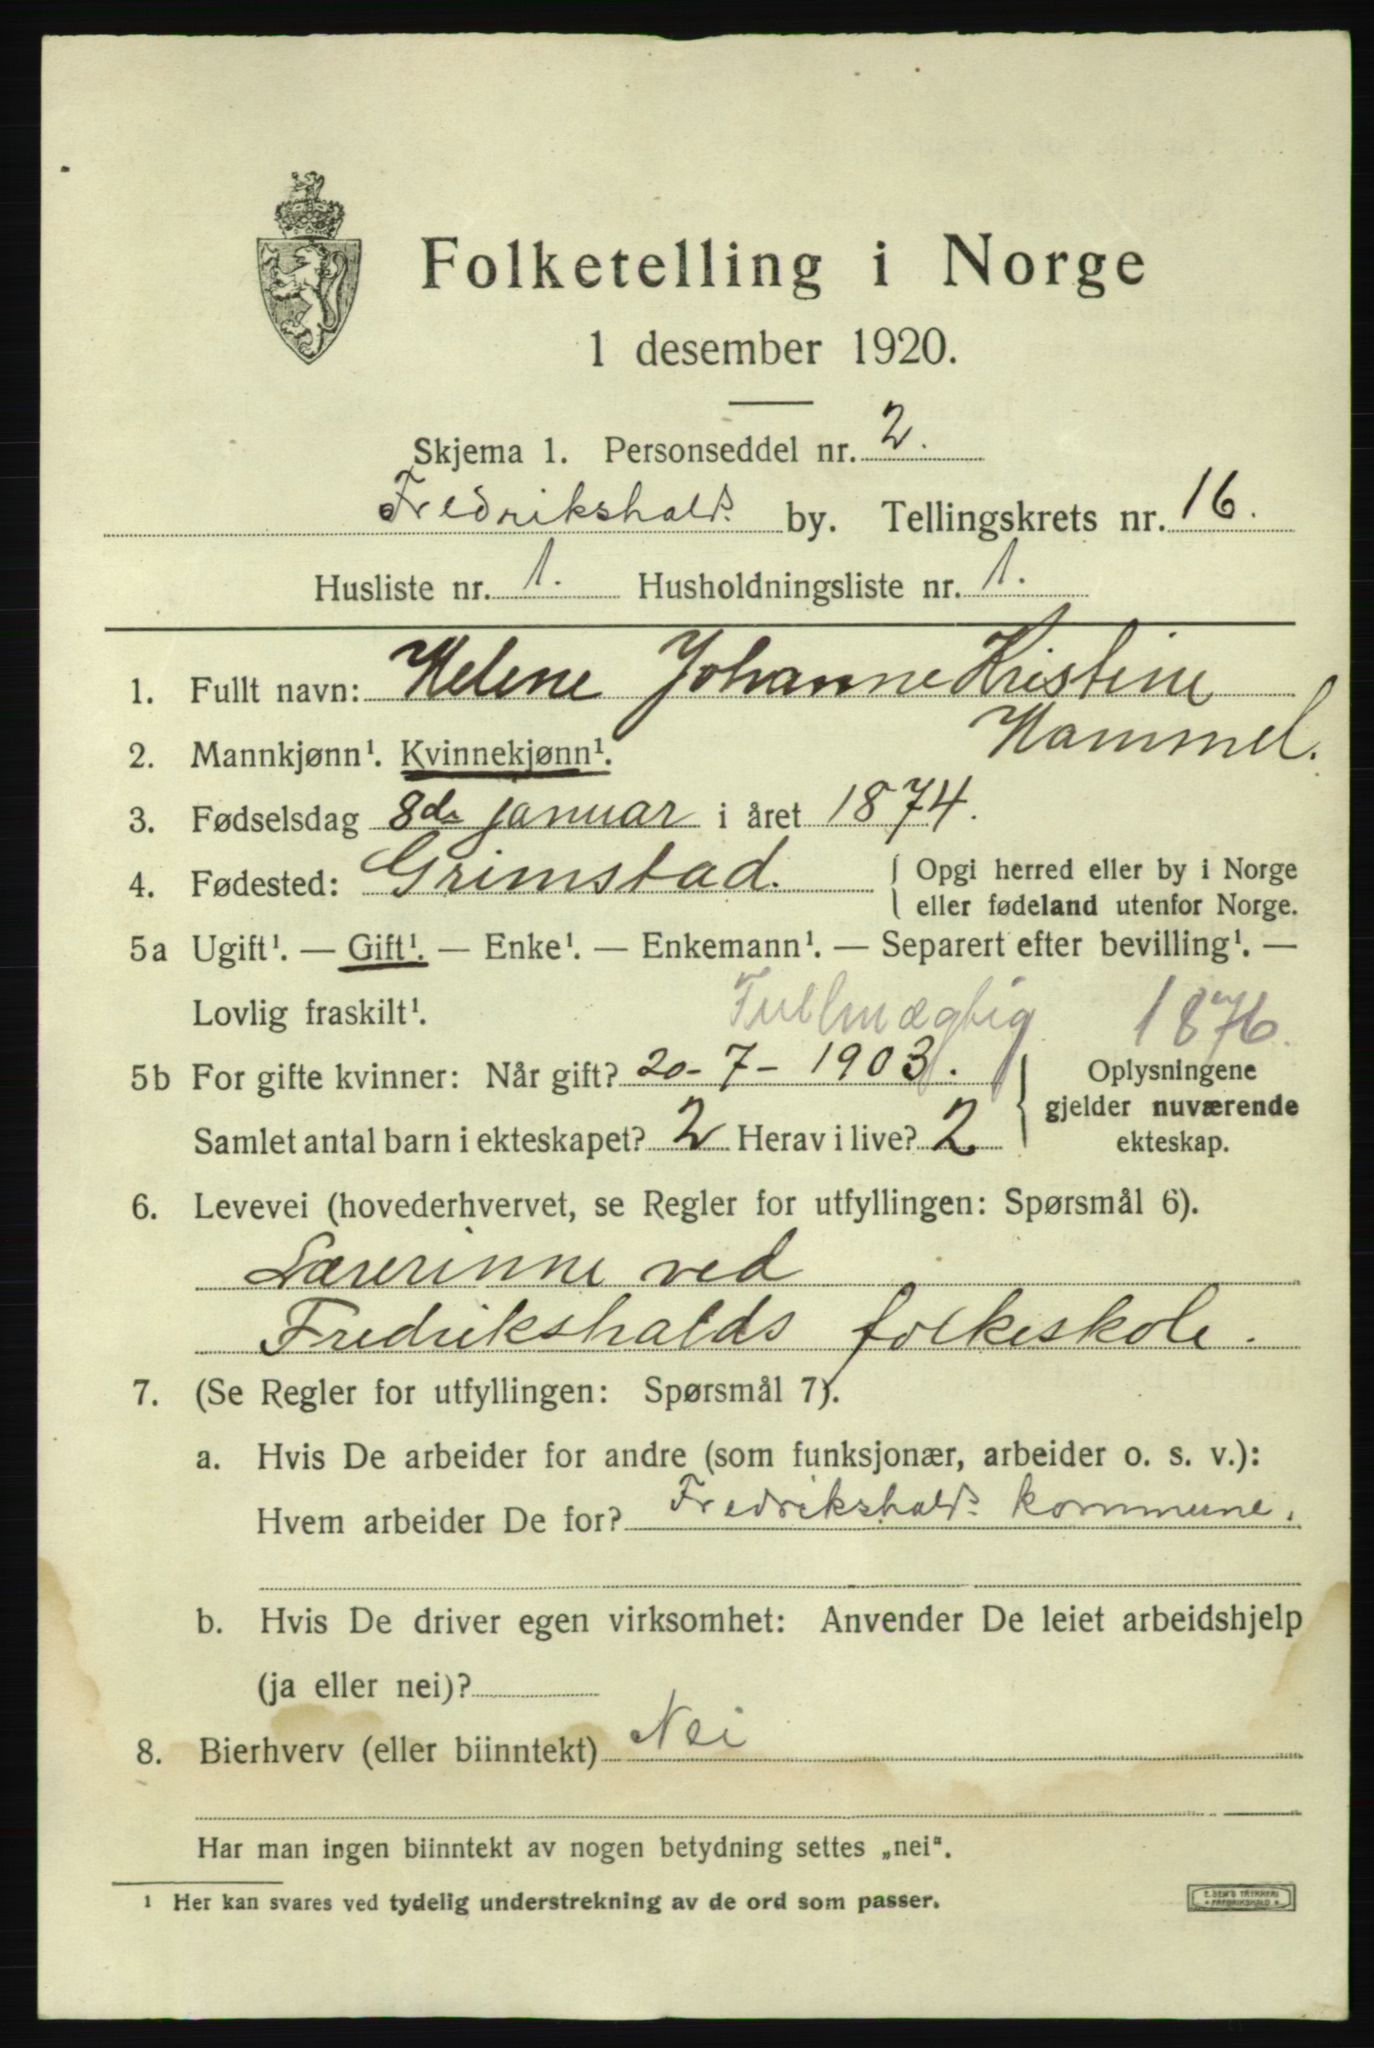 Folketelling i Norge
1 desember 1920.
Skjema 1. Personseddel nr. 2.
Fredrikshalds by. Tellingskrets nr. 16.
Husliste nr. 1. Husholdningsliste nr. 1.
1. Fullt navn: Helene Johanne Kristine
Hammel.
2. Mannkjønn¹. Kvinnekjønn¹.
3. Fødselsdag 8de januar i året 1874.
4. Fødested: Grimstad. { Opgi herred eller by i Norge
eller fødeland utenfor Norge.
5a Ugift¹. — Gift¹. — Enke¹. — Enkemann¹. — Separert efter bevilling¹. —
Lovlig fraskilt¹. Fullmægtig 1876.
5b For gifte kvinner: Når gift? 20-7-1903. } Oplysningene
gjelder nuværende
Samlet antal barn i ekteskapet? 2 Herav i live? 2 ekteskap.
6. Levevei (hovederhvervet, se Regler for utfyllingen: Spørsmål 6).
Lærerinne ved
Fredrikshalds folkeskole.
7. (Se Regler for utfyllingen: Spørsmål 7).
a. Hvis De arbeider for andre (som funksjonær, arbeider o. s. v.):
Hvem arbeider De for? Fredrikshalds kommune.
b. Hvis De driver egen virksomhet: Anvender De leiet arbeidshjelp
(ja eller nei)?
8. Bierhverv (eller biinntekt) Nei
Har man ingen biinntekt av nogen betydning settes „nei“.
¹ Her kan svares ved tydelig understrekning av de ord som passer.
E. SEM'S TRYKKERI
• FREDRIKSHALD •